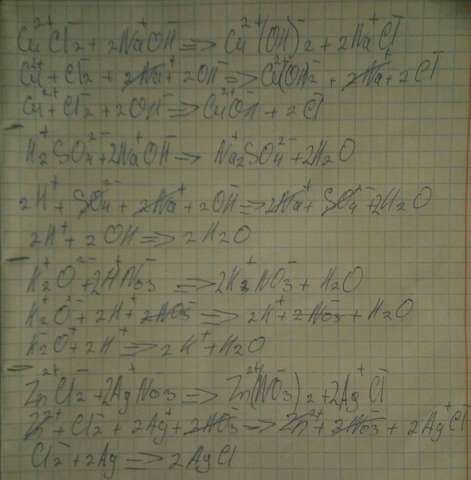 Cu²⁺Cl₂⁻ + 2Na⁺OH⁻ => Cu²⁺(OH)⁻₂ + 2Na⁺Cl⁻
Cu²⁺ + Cl₂⁻ + 2Na⁺ + 2OH⁻ => Cu²⁺(OH)₂⁻ + 2Na⁺ + 2Cl⁻
Cu²⁺ + Cl₂⁻ + 2OH⁻ => Cu²⁺OH⁻ + 2Cl⁻
H₂⁺SO₄²⁻ + 2Na⁺OH⁻ → Na₂⁺SO₄²⁻ + 2H₂O
2H⁺ + SO₄²⁻ + 2Na⁺ + 2OH⁻ => 2Na⁺ + SO₄²⁻ + 2H₂O
2H⁺ + 2OH⁻ => 2H₂O
K₂⁺O²⁻ + 2H⁺NO₃⁻ => 2K⁺NO₃⁻ + H₂O
K₂⁺O²⁻ + 2H⁺ + 2NO₃⁻ => 2K⁺ + 2NO₃⁻ + H₂O
K₂⁺O²⁻ + 2H⁺ => 2K⁺ + H₂O
Zn²⁺Cl₂⁻ + 2Ag⁺NO₃⁻ => Zn²⁺(NO₃)⁻₂ + 2Ag⁺Cl⁻
Zn²⁺ + Cl₂⁻ + 2Ag⁺ + 2NO₃⁻ => Zn²⁺ + 2NO₃⁻ + 2Ag⁺Cl⁻
Cl₂⁻ + 2Ag => 2AgCl